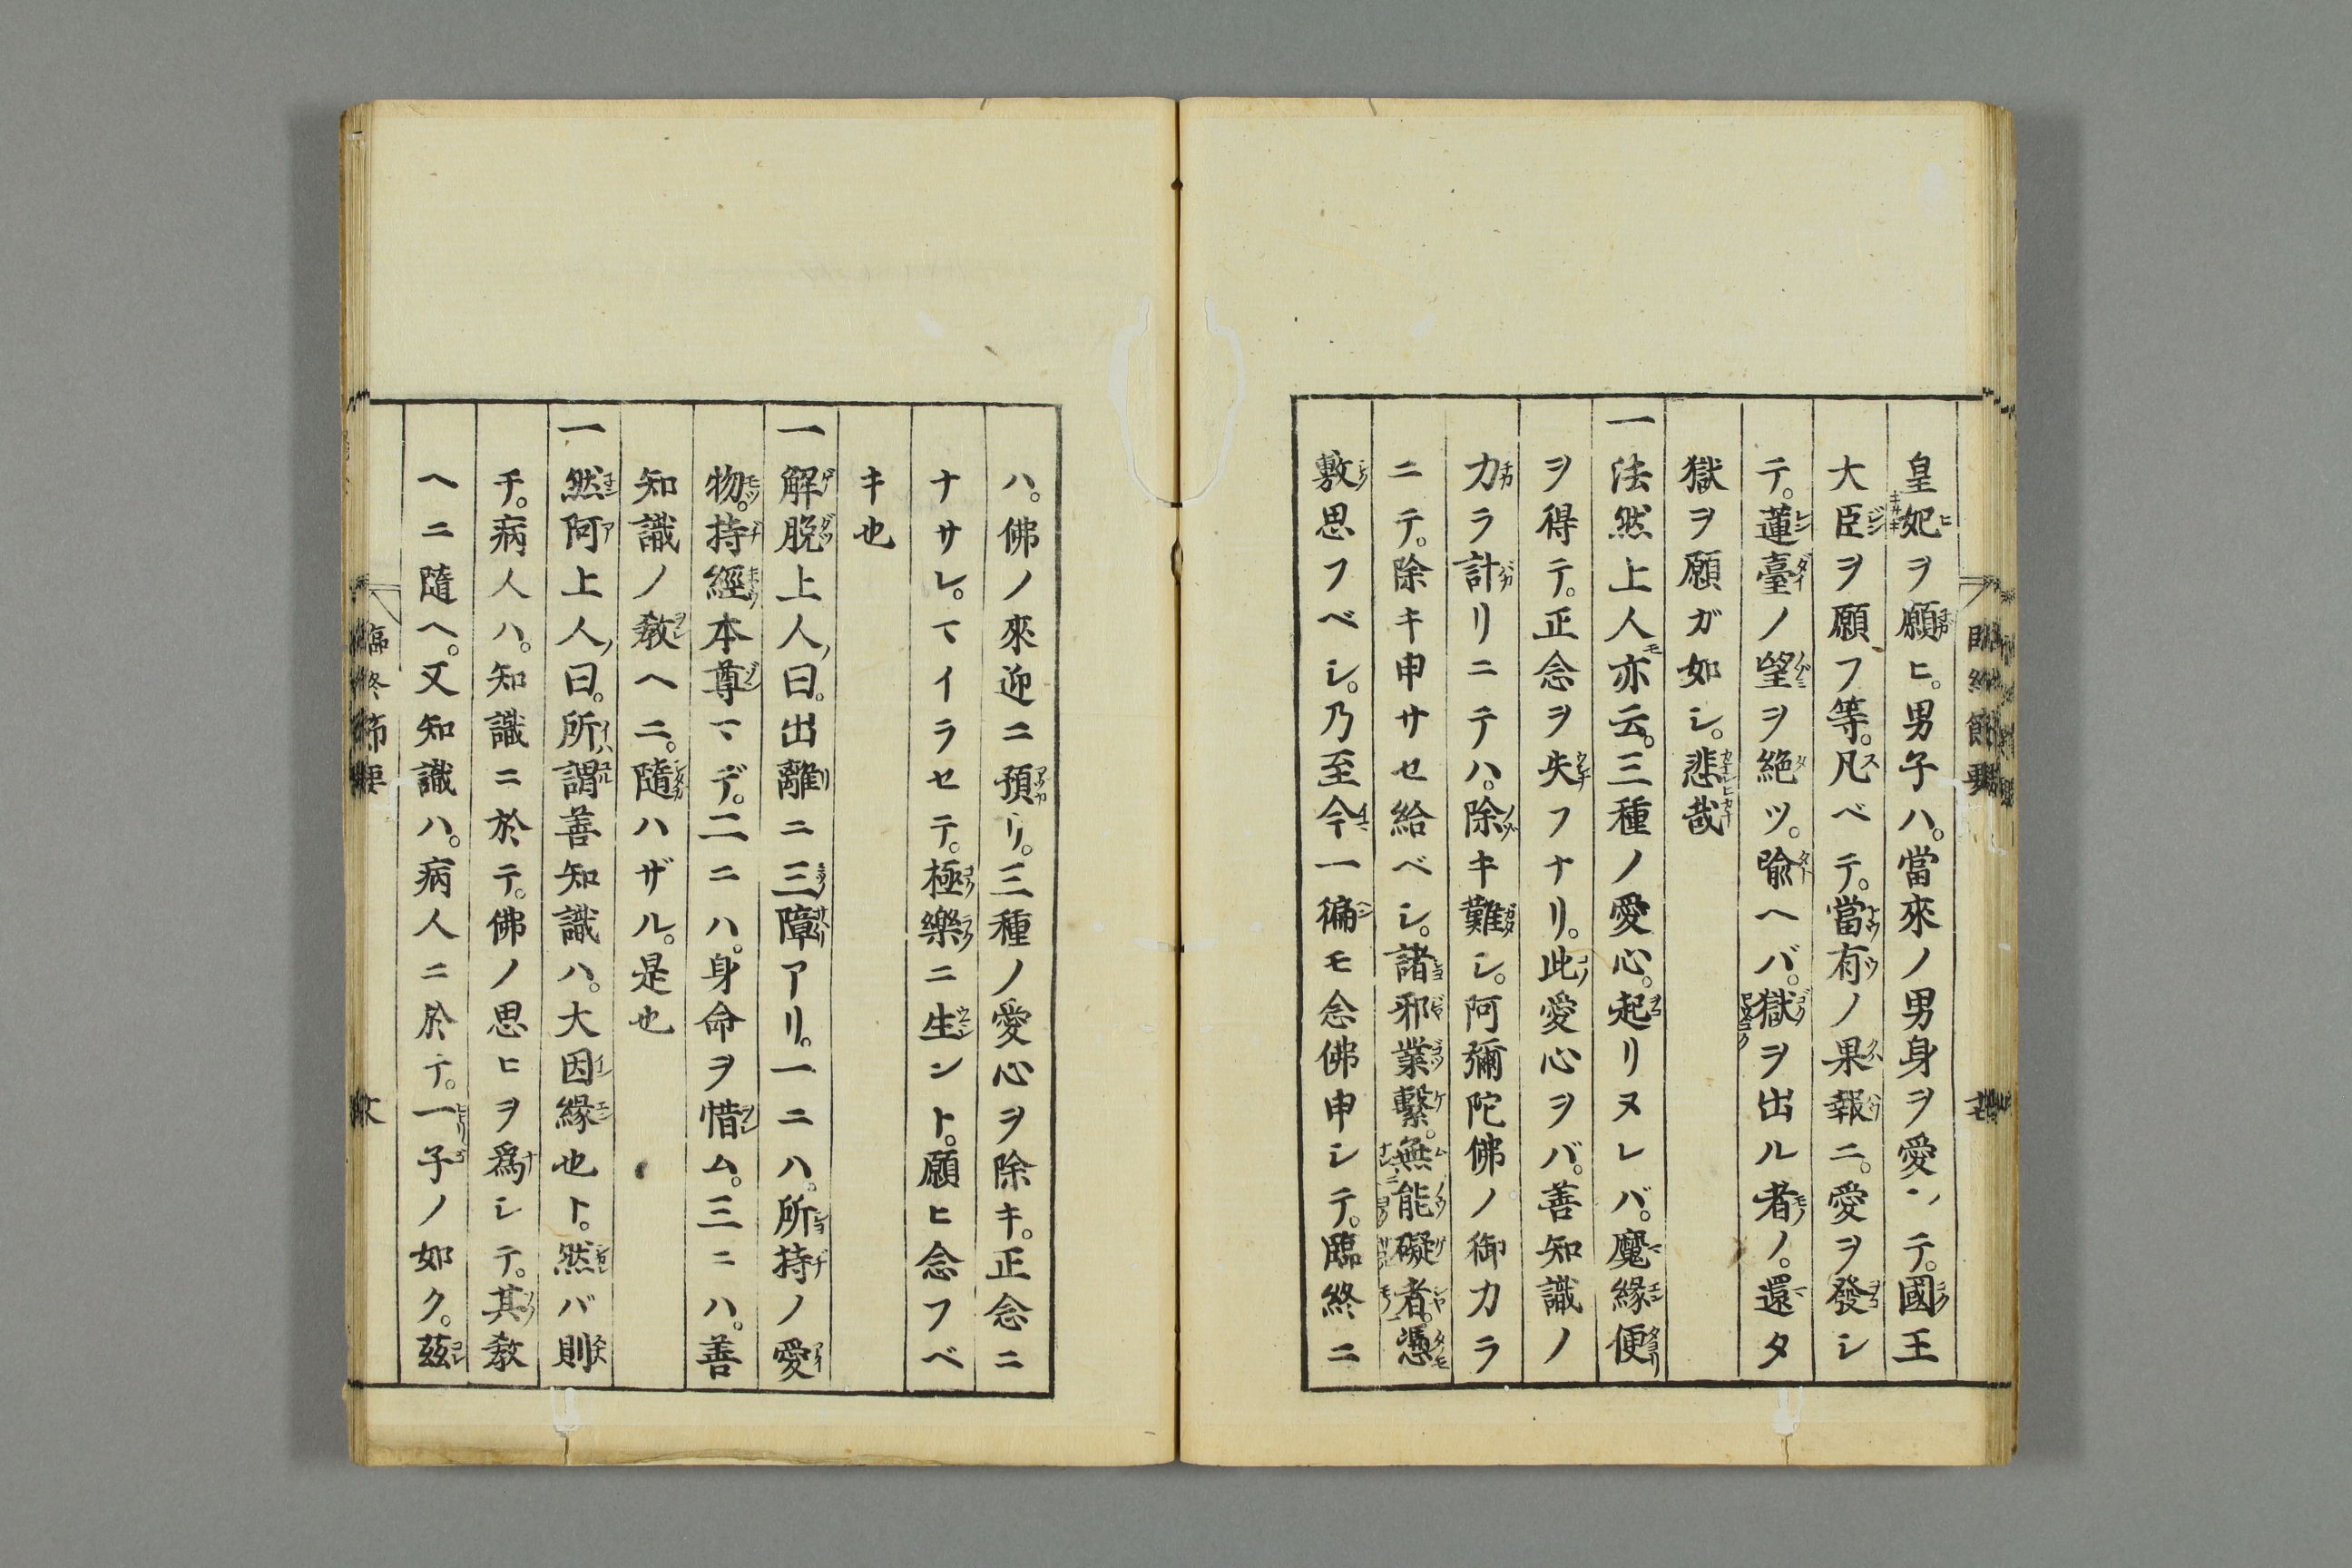 皇妃ヲ願ヒ。男子ハ。當來ノ男身ヲ愛〻テ。國王
大臣ヲ願フ等。凡ベテ。當有ノ果報ニ。愛ヲ發シ
テ。蓮臺ノ望ヲ絶ツ。喩ヘバ。獄ヲ出ル者ノ。還タ
獄ヲ願ガ如シ。悲哉
一法然上人亦云。三種ノ愛心。起リヌレバ。魔緣便
ヲ得テ。正念ヲ失フナリ。此愛心ヲバ。善知識ノ
力ラ計リニテハ。除キ難シ。阿彌陀佛ノ御力ラ
ニテ。除キ申サセ給ベシ。諸邪業繫。無能礙者。憑
敷思フベシ。乃至今一徧モ念佛申シテ。臨終ニ
ハ。佛ノ來迎ニ預リ。三種ノ愛心ヲ除キ。正念ニ
ナサレ。マイラセテ。極樂ニ生ント。願ヒ念フベ
キ也
一解脫上人ノ曰。出離ニ三障アリ。一ニハ。所持ノ愛
物。持經本尊マデ。二ニハ。身命ヲ惜ム。三ニハ。善
知識ノ敎ヘニ。隨ハザル。是也
一然阿上人ノ曰。所謂善知識ハ。大因緣也ト。然バ則
チ。病人ハ。知識ニ於テ。佛ノ思ヒヲ爲シテ。其敎
ヘニ隨ヘ。又知識ハ。病人ニ於テ。一子ノ如ク。茲
臨終節要